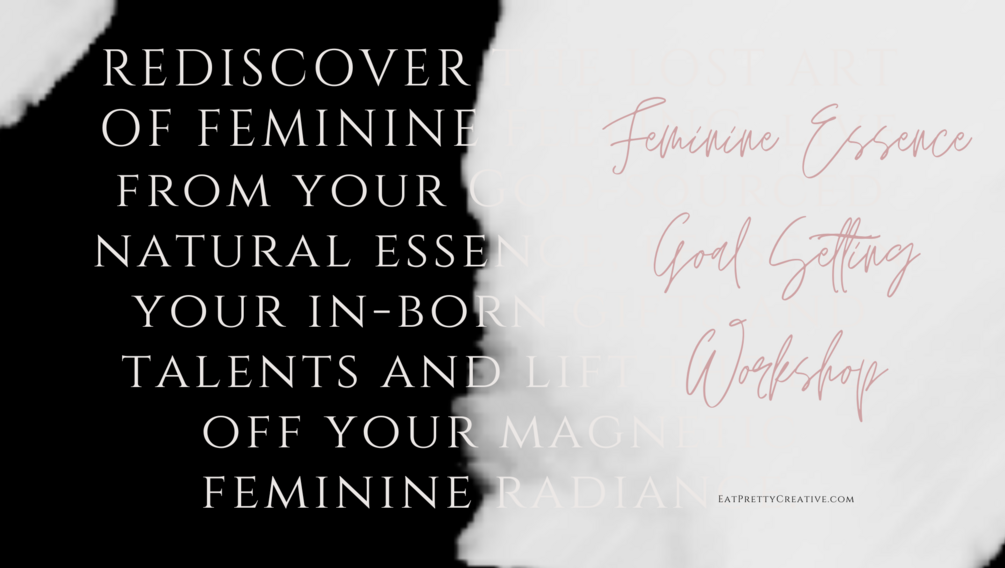 REDISCOVER THE LOST ART
OF FEMININE
FROM YOUR
NATURAL ESSENC
YOUR IN-BORN
TALENTS AND LIFT
OFF YOUR
FEMININE RADIAN
Feminine Essence
Goal Setting
Workshop
EatPrettyCreative.com